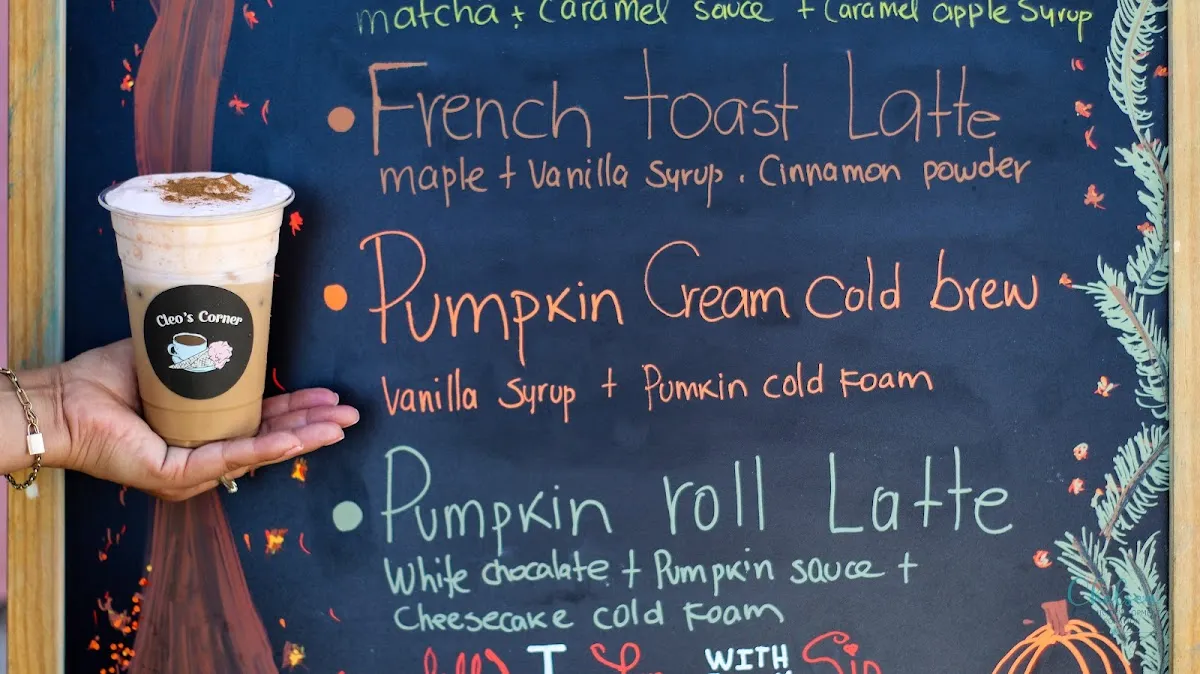 matcha + Caramel sauce + Caramel apple Syrup
French toast Latte
maple + Vanilla Syrup . Cinnamon powder
Cleo's Corner
Pumpkin Cream Cold brew
Vanilla Syrup + Pumkin cold Foam
Pumpkin roll Latte
White chocolate + Pumpkin sauce +
Cheesecake cold Foam
WITH